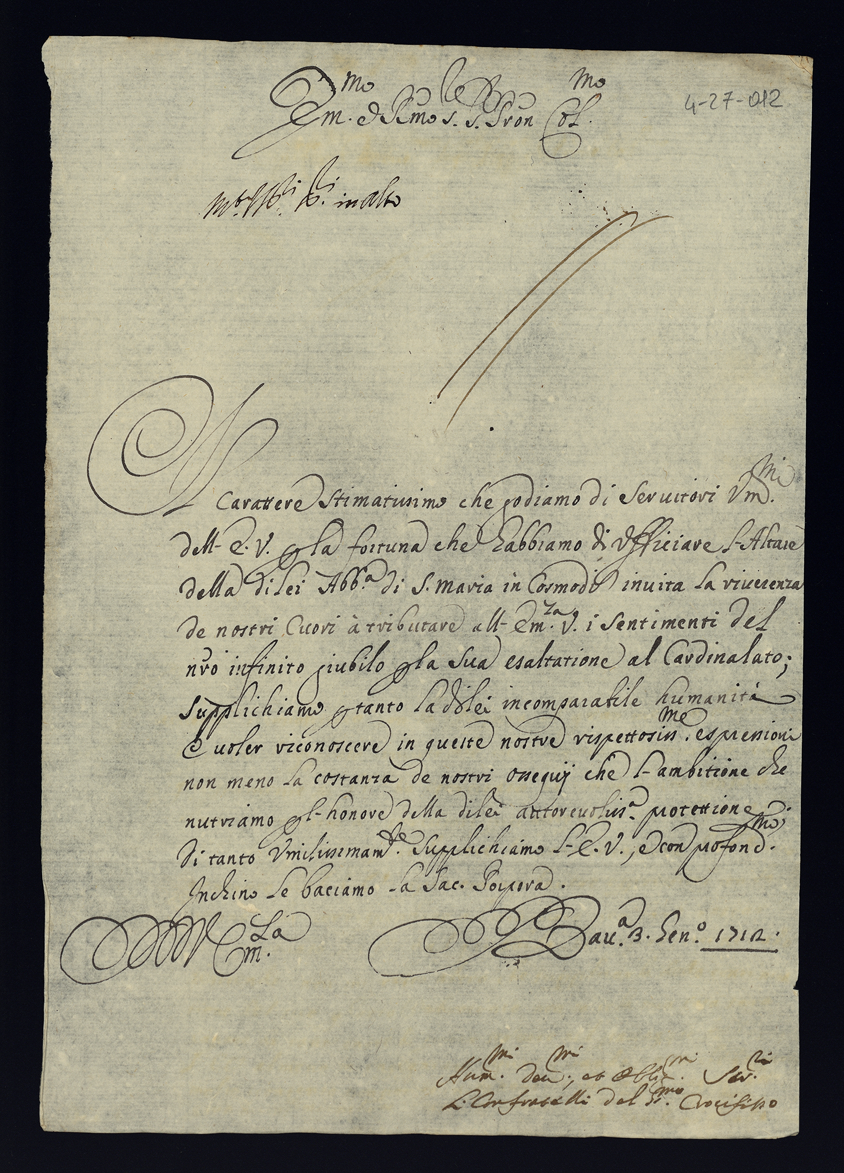 4-27-012
Em.mo e R.mo S. S. Pron Col.mo
in alto
Il Carattere stimatissimo che godiamo di Servitori Vm.mi
dell-E.V. p la fortuna che habbiamo di Vfficiare l-Altare
della di lei Abb.a di S. Maria in Cosmodi invita la riverenza
de nostri Cuori à tributare all-Em.za V. i Sentimenti del
nro infinito giubilo p la Sua esaltatione al Cardinalato;
Supplichiamo p tanto la di lei incomparabile humanità
è voler riconoscere in queste nostre rispettosiss.me espressioni
non meno la costanza de nostri ossequij che l-ambitione che
nutriamo p l-honore della di lei auttorevoliss.a protettione
Di tanto Vmilissimam.te Supplichiamo l-E.V., e con profond.mo
Inchino le baciamo la Sac. Porpora.
Rav.a 3. Gen.o 1712.
Em.za
Hum.mi Deu.mi, et Obblig.mi Ser.ri
L. Confratelli del SS.mo Crocifisso